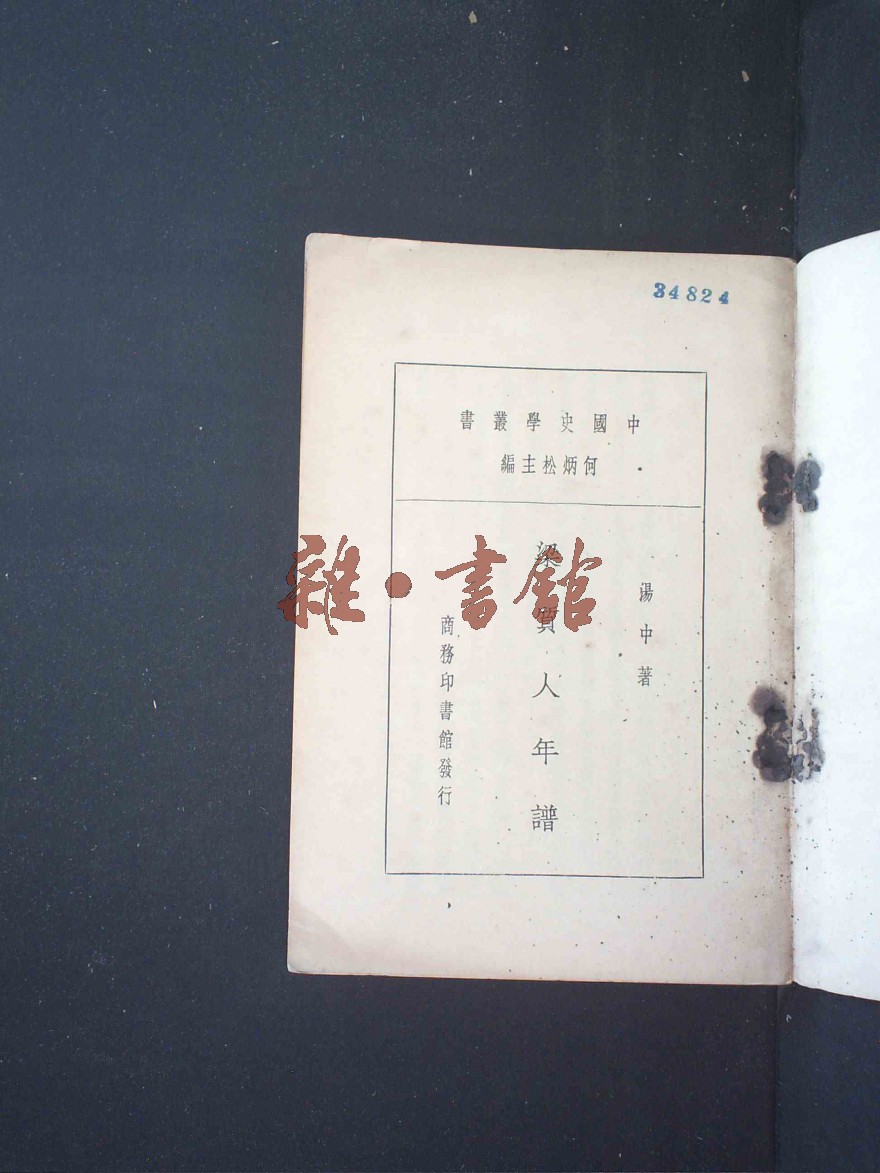 34824
中國史學叢書
何炳松主編
湯中著
梁質人年譜
商務印書館發行
雜·書館